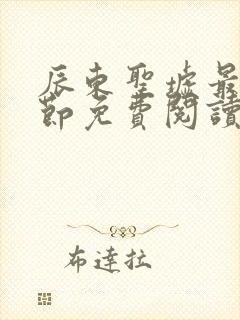 辰東聖墟最
節免費閱讀
布達拉